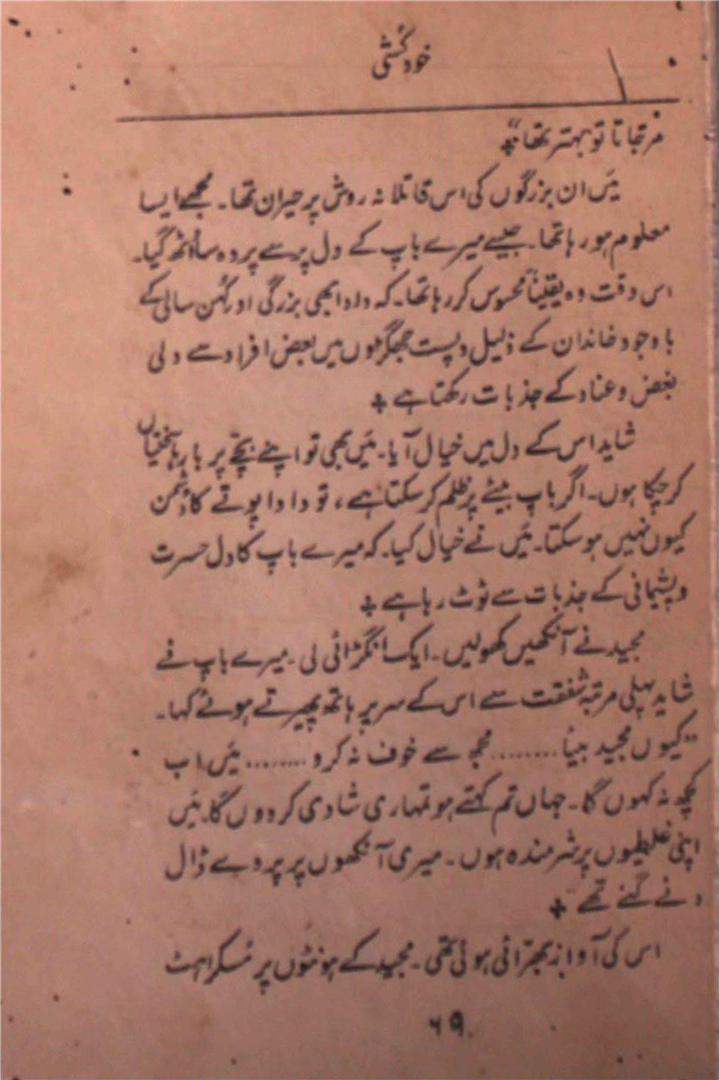 خودکُشی
مر جاتا تو بہتر تھا“ ۔
میَں ان بزرگوں کی اس قاتلانہ روش پر حیران تھا۔ مجھے ایسا
معلوم ہو رہا تھا۔ جیسے میرے باپ کے دل پر سے پردہ سا اُٹھ گیا۔
اس وقت وہ یقیناً محسوس کر رہا تھا۔ کہ دادا بھی بزرگی اور کُہن سالی کے
باوجود خاندان کے ذلیل و پست جھگڑوں میں بعض افراد سے دلی
بغض و عناد کے جذبات رکھتا ہے ۔
شاید اس کے دل میں خیال آیا۔ میَں بھی تو اپنے بچّے پر بارہا سختیاں
کر چکا ہوں۔ اگر باپ بیٹے پر ظلم کر سکتا ہے ، تو دادا پوتے کا دُشمن
کیوں نہیں ہو سکتا۔ میَں نے خیال کیا۔ کہ میرے باپ کا دل حسرت
و پشیمانی کے جذبات سے ٹوٹ رہا ہے ۔
مجید نے آنکھیں کھولیں۔ ایک انگڑائی لی۔ میرے باپ نے
شاید پہلی مرتبہ شفقت سے اس کے سر پر ہاتھ پھیرتے ہوئے کہا۔
”کیوں مجید بیٹا ........ مجھ سے خوف نہ کرو ........ میَں اب
کچھ نہ کہوں گا۔ جہاں تم کہتے ہو تمہاری شادی کر دوں گا۔ میَں
اپنی غلطیوں پر شرمندہ ہوں۔ میری آنکھوں پر پردے ڈال
دئے گئے تھے“ ۔
اس کی آواز بھرّائی ہوئی تھی۔ مجید کے ہونٹوں پر مُسکراہٹ
۶۹